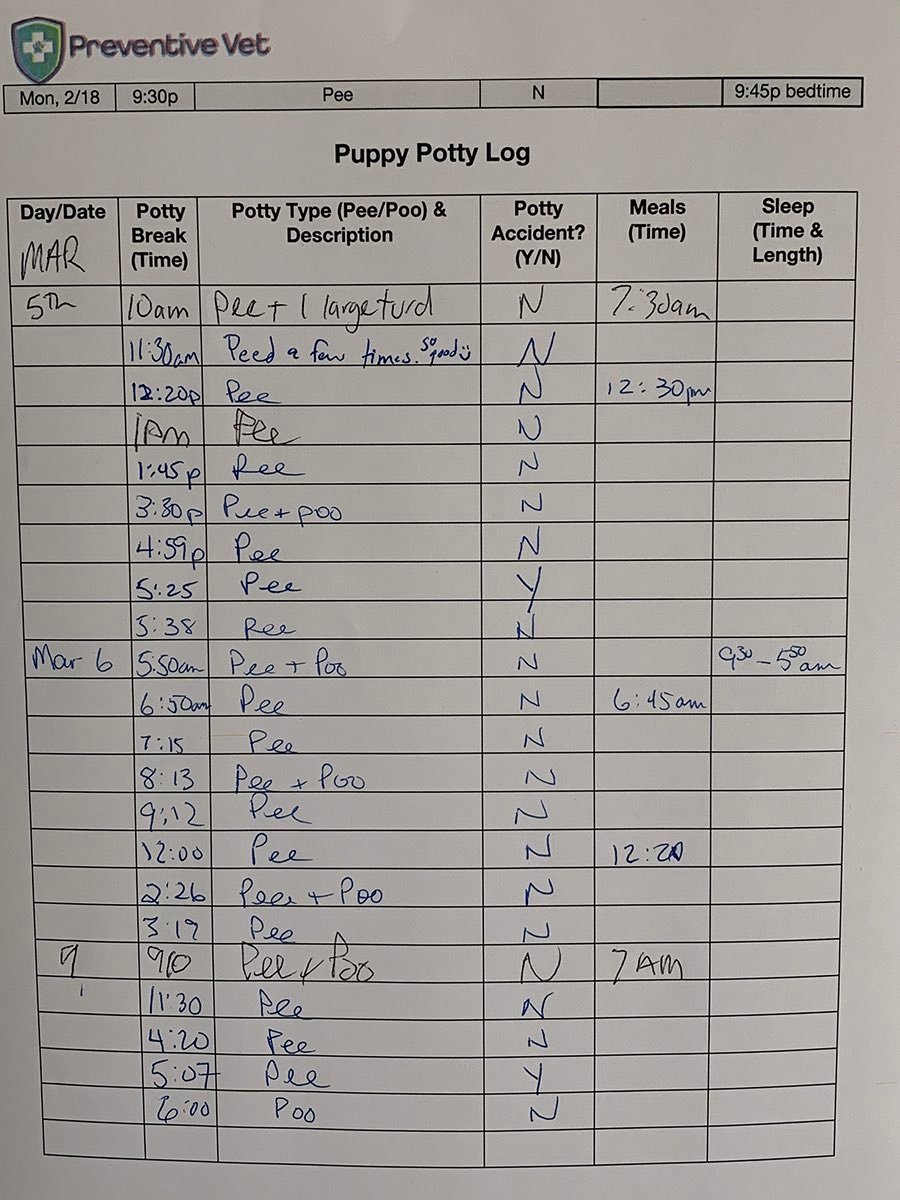 Preventive Vet
Mon, 2/18 9:30p Pee N 9:45p bedtime
Puppy Potty Log
Day/Date Potty Break (Time) Potty Type (Pee/Poo) & Description Potty Accident? (Y/N) Meals (Time) Sleep (Time & Length)
MAR
5th 10am Pee + 1 large turd N 7:30am
11:30am Peed a few times. so good N
12:20p Pee N 12:30pm
1AM Pee N
1:45p Pee N
3:30p Pee + poo N
4:59p Pee N
5:25 Pee Y
5:38 Pee N
Mar 6 5:50am Pee + Poo N 9:30 - 5:50 am
6:50am Pee N 6:45am
7:15 Pee N
8:13 Pee + Poo N
9:12 Pee N
12:00 Pee N 12:20
2:26 Pee + Poo N
3:19 Pee N
9 910 Pee + Poo N 7 AM
11:30 Pee N
4:20 Pee N
5:07 Pee Y
6:00 Poo N